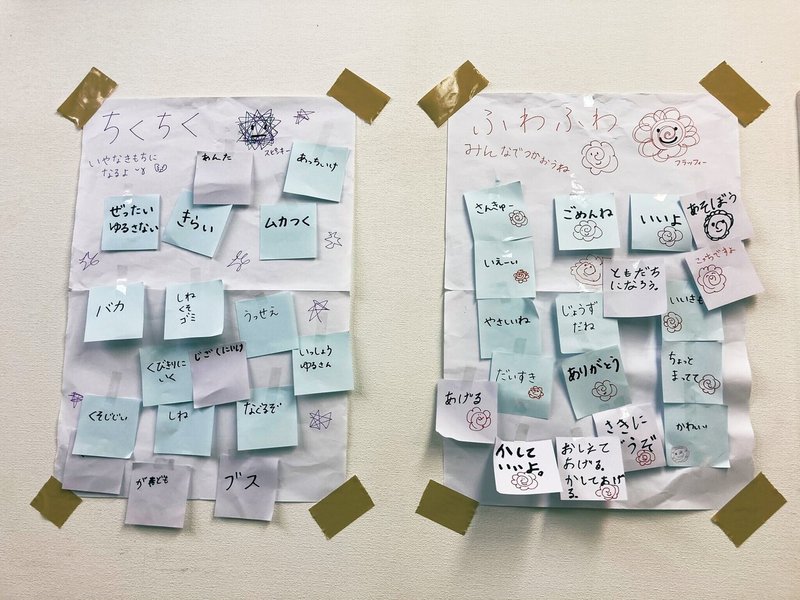 ちくちく
いやなきもちに
なるよ
あんた
あっちいけ
ぜったい
ゆるさない
きらい
ムカつく
バカ
しね
くそ
ゴミ
うっせえ
くびきりに
いく
じごくにいけ
いっしょう
ゆるさん
くそじじい
しね
なぐるぞ
ブス
ふわふわ
みんなでつかおうね
フラッフィー
さんきゅー
ごめんね
いいよ
あそぼう
いえーい
ともだち
になろう。
こっちですよ
やさしいね
じょうず
だね
だいすき
ありがとう
ちょっと
まってて
あげる
さきに
どうぞ
かわいい
かして
いいよ。
おしえて
あげる。
かしてあげ
る。